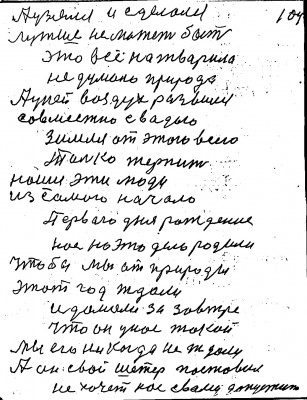 А узяли и сделали 109
лутше не может быт
это всё натварила
не думано природа
А путй воздух развили
совместно с вадою
Земля от этого всего
Толко терпит
наши эти люди
из самого начало
Первого дня рождение
нас на это дело родили
чтобы мы от природы
этот год ждали
и думали за завтре
что он у нас такой
мы его никогда не ждали
А он свой шетёр поставил
не хочет нас сваму допустит